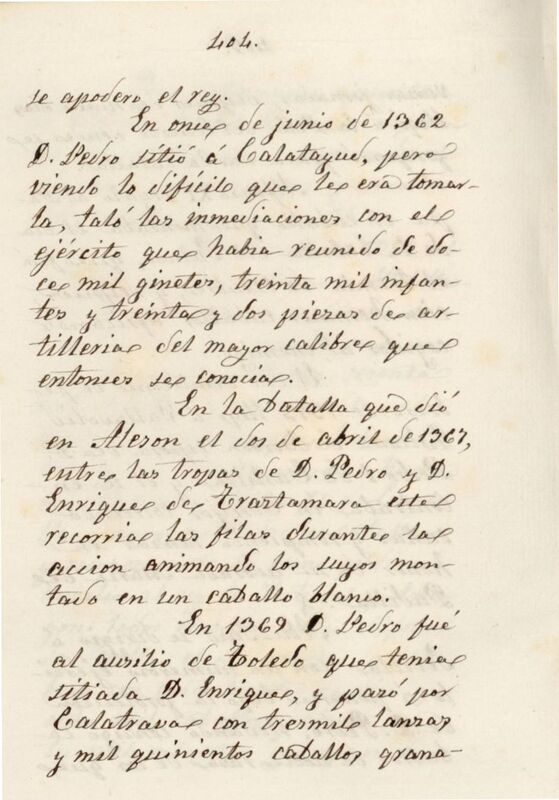 404.
se apodero el rey.
En once de junio de 1362
D. Pedro sitió á Calatayud, pero
viendo lo dificil que le era tomar-
la, taló las inmediaciones con el
ejército que habia reunido de do-
ce mil ginetes, treinta mil infan-
tes y treinta y dos piezas de ar-
tilleria del mayor calibre que
entonces se conocia.
En la batalla que dió
en Aleson el dos de abril de 1367,
entre las tropas de D. Pedro y D.
Enrique de Trastamara este
recorria las filas durante la
accion animando los suyos mon-
tado en un caballo blanco.
En 1369 D. Pedro fué
al auxilio de Toledo que tenia
sitiada D. Enrique, y pazó por
Calatrava con tresmil lanzas
y mil quinientos caballos grana-